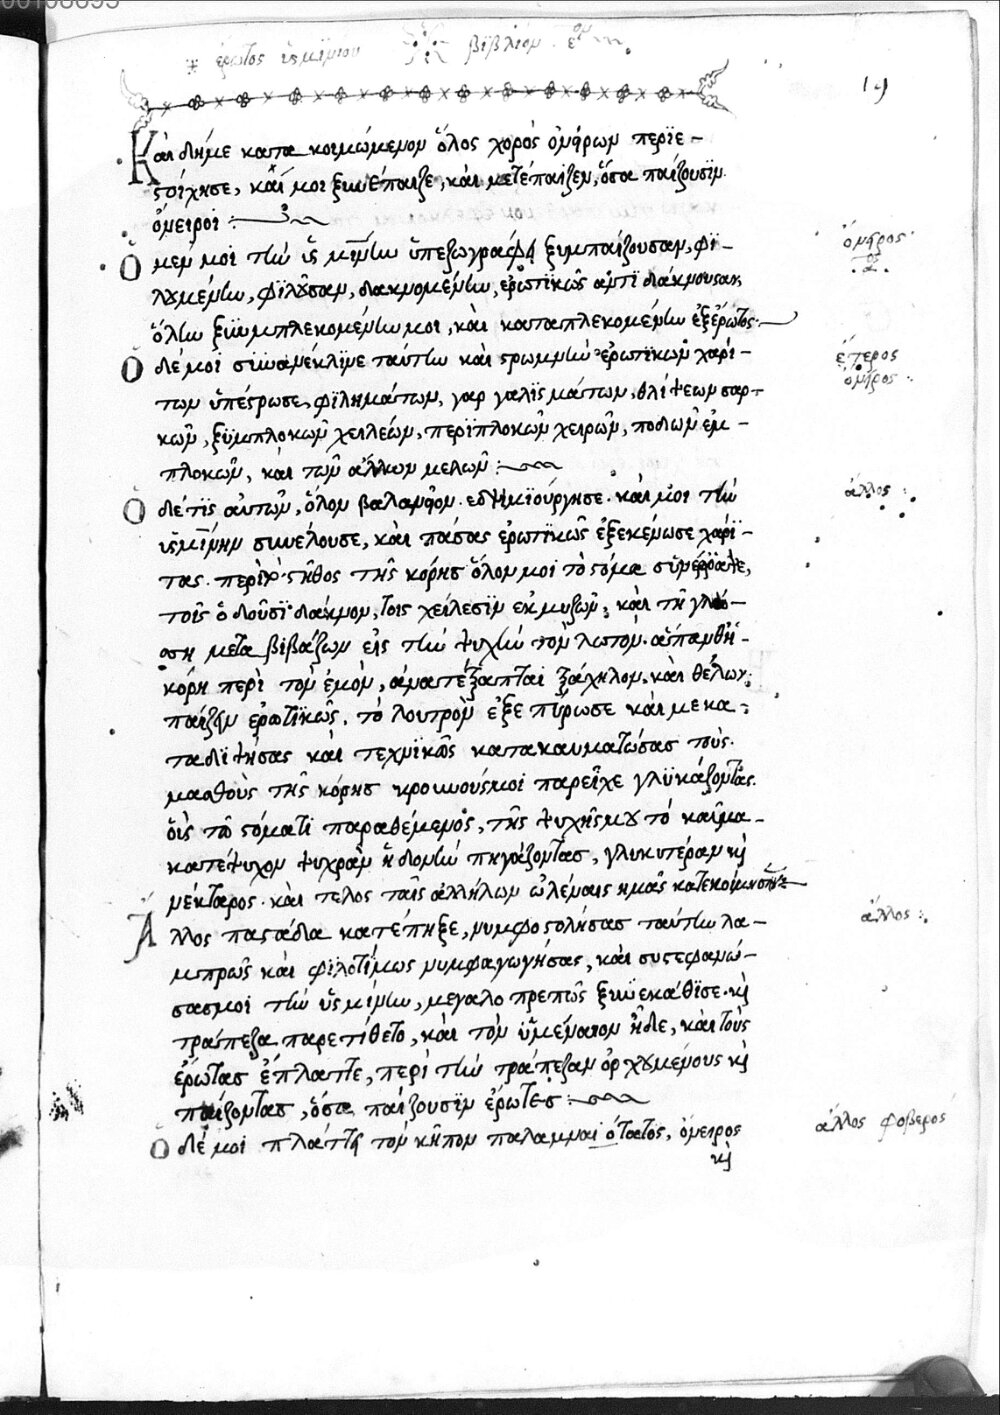 00106695
ἔρωτος ὑσμινίου βιβλίον ε^ον
19
Καὶ δή με κατακοιμώμενον ὅλος χορὸς ὀνείρων περιε-
στοίχησε, καί μοι ξυνέπαιζε, καὶ μετέπαιζεν, ὅσα παίζουσιν
ὄνειροι :
Ὁ μέν μοι τὴν ὑσμίνην ὑπεζωγράφει ξυμπαίζουσαν, φι-
λουμένην, φιλοῦσαν, δακνομένην, ἐρωτικῶς ἀντιδάκνουσαν,
ὅλην ξυμπλεκομένην μοι, καὶ καταπλεκομένην ἐξ ἔρωτος.
Ὁ δέ μοι συνανέκλινε ταύτην καὶ στρωμνὴν ἐρωτικῶν χαρί-
των ὑπέστρωσε, φιλημάτων, γαργαλισμάτων, θλίψεων σαρ-
κῶν, ξυμπλοκῶν χειλέων, περιπλοκῶν χειρῶν, ποδῶν ἐμ-
πλοκῶν, καὶ τῶν ἄλλων μελῶν :
Ὁ δέ τις αὐτῶν, ὅλον βαλανεῖον ἐδημιούργησε. καί μοι τὴν
ὑσμίνην συνέλουσε, καὶ πάσας ἐρωτικῶς ἐξεκένωσε χάρι-
τας. περὶ στῆθος τῆς κόρης ὅλον μοι τὸ στόμα συνέρραψε,
τοῖς ὀδοῦσι δάκνον, τοῖς χείλεσιν ἐκμυζῶν, καὶ τῇ γλώσ-
ση μεταβιβάζων εἰς τὴν ψυχὴν τὸν λωτὸν. ἀπανθεῖ
κόρη περὶ τὸν ἐμὸν, ἀνατέξαπται τράχηλον, καὶ θέλων
παίζειν ἐρωτικῶς, τὸ λουτρὸν ἐξεπύρωσε καί με κα-
ταδιψήσας καὶ τεχνικῶς κατακαυματώσας τοὺς
μασθοὺς τῆς κόρης κρουνούς μοι παρεῖχε γλυκάζοντας.
οἷς τῷ στόματι παραθέμενος, τῆς ψυχῆς μου τὸ καῦμα
κατέψυχον ψυχρὰν ἡδονὴν πηγάζοντας, γλυκυτέραν καὶ
νέκταρος. καὶ τέλος ταῖς ἀλλήλων ὠλέναις ἡμᾶς κατεκοίμησεν
Ἄλλος παστάδα κατέπηξε, νυμφοστολήσας ταύτην λα-
μπρῶς καὶ φιλοτίμως νυμφαγωγήσας, καὶ συστεφανώ-
σας μοι τὴν ὑσμίνην, μεγαλοπρεπῶς ξυνεκάθισε. καὶ
τράπεζα παρετίθετο, καὶ τὸν ὑμέναιον ᾖδε, καὶ τοὺς
ἔρωτας ἔπλαττε, περὶ τὴν τράπεζαν ὀρχουμένους καὶ
παίζοντας, ὅσα παίζουσιν ἔρωτες :
Ὁ δέ μοι πλάττει τὸν κῆπον παλαμναιότατος, ὄνειρος
καὶ
ὄνειρος
α^ος
ἕτερος
ὄνειρος
ἄλλος
ἄλλος
ἄλλος φοβερός